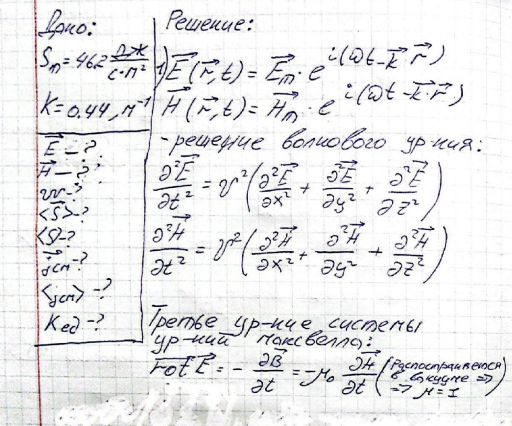 Дано:
Sm = 46.2 Дж/с·м²
K = 0.44, м⁻¹
E⃗ - ?
H⃗ - ?
w - ?
<S⃗> - ?
<S> - ?
j⃗см - ?
<jсм> - ?
Kед - ?
Решение:
1) E⃗(r⃗,t) = E⃗m · e^{i(ωt - k⃗·r⃗)}
H⃗(r⃗,t) = H⃗m · e^{i(ωt - k⃗·r⃗)}
- решение волнового ур-ния:
∂²E⃗/∂t² = v²(∂²E⃗/∂x² + ∂²E⃗/∂y² + ∂²E⃗/∂z²)
∂²H⃗/∂t² = v²(∂²H⃗/∂x² + ∂²H⃗/∂y² + ∂²H⃗/∂z²)
Третье ур-ние системы
ур-ний Максвелла:
rot E⃗ = - ∂B⃗/∂t = -μ₀ ∂H⃗/∂t (Распостраняется
в вакууме =>
=> μ = 1)